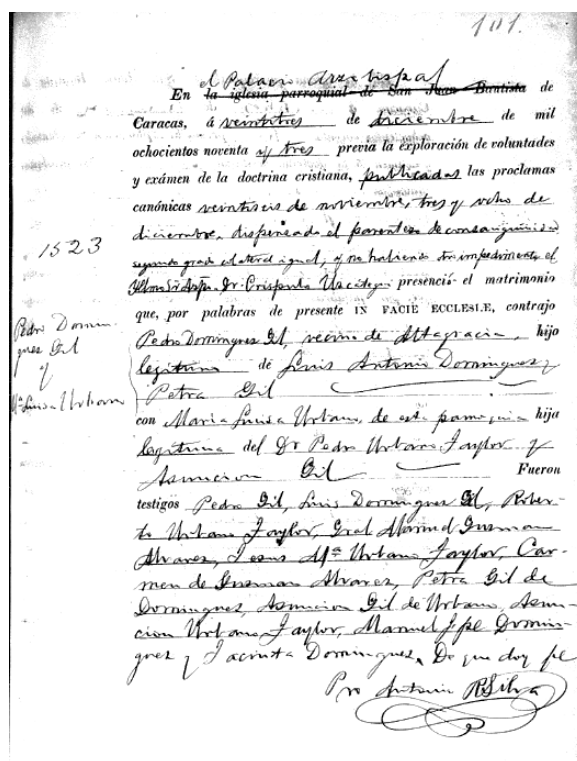 101.
el Palacio Arzobispal
En la iglesia parroquial de San Juan Bautista de
Caracas, á veintitres de diciembre de mil
ochocientos noventa y tres previa la exploración de voluntades
y exámen de la doctrina cristiana, publicadas las proclamas
canónicas veintiseis de noviembre, tres y ocho de
diciembre, dispensado el parentesco de consanguinidad
segundo grado colateral igual, y no habiendo otro impedimento el
Illmo Sr Arzpo. Dr. Crispulo Uzcátegui presenció el matrimonio
que, por palabras de presente IN FACIE ECCLESLÆ, contrajo
Pedro Dominguez Gil, vecino de Altagracia, hijo
legitimo de Luis Antonio Dominguez y
Petra Gil
con Maria Luisa Urbano, de esta parroquia hija
legitima del Dr Pedro Urbano Taylor y
Asuncion Gil Fueron
testigos Pedro Gil, Luis Dominguez Gil, Rober-
to Urbano Taylor, Gral Manuel Guzman
Alvarez, Jesus Mª Urbano Taylor, Car-
men de Guzman Alvarez, Petra Gil de
Dominguez, Asuncion Gil de Urbano, Asun-
cion Urbano Taylor, Manuel Jpe Domin-
guez y Jacinta Dominguez. De que doy fe
Pro Antonio R Silva
1523
Pedro Domin-
guez Gil
y
Mª Luisa Urbano